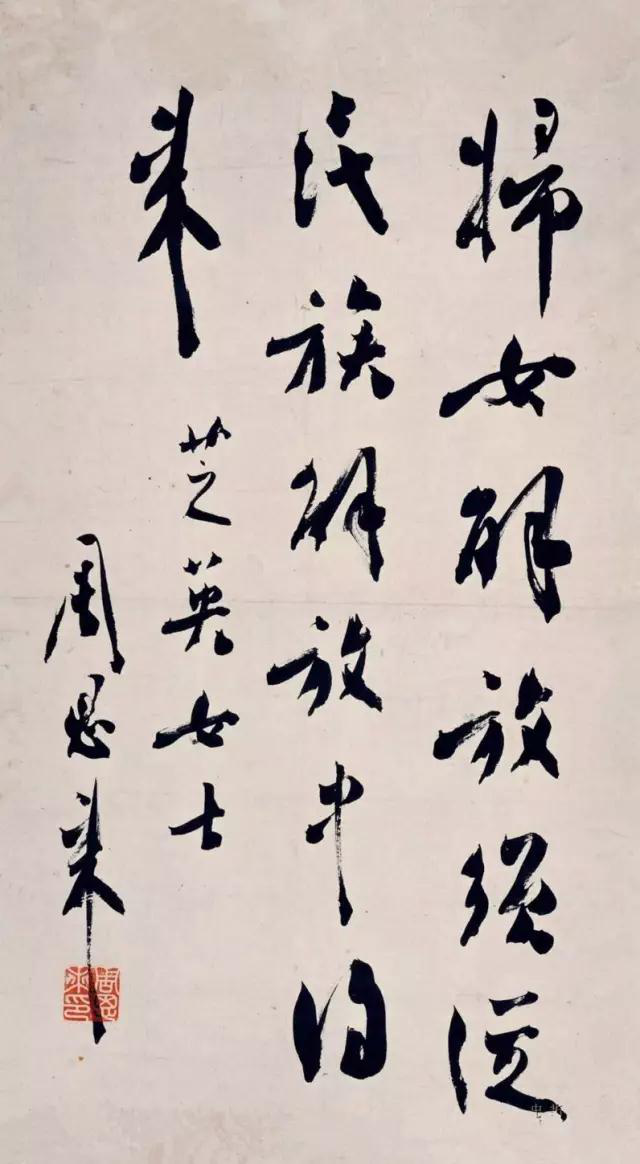 婦女解放須從
民族解放中得
來
芝英女士
周恩來
周恩來印